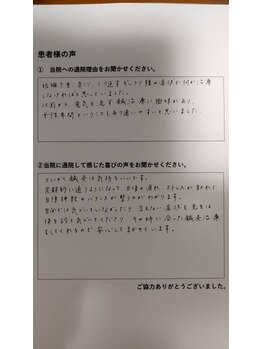 患者様の声
① 当院への通院理由をお聞かせください。
眼精疲労、肩こり、くり返すぎっくり腰の症状で何か治療
しなければと思っていました。
以前から、電気を流す鍼治療に興味があり、
女性専用ということもあり通いやすいと思いました。
②当院に通院して感じた喜びの声をお聞かせください。
とにかく鍼灸は気持ちいいです。
定期的に通うようになって、日頃の疲れ、ストレスが取れて
自律神経のバランスが整うのがわかります。
自分では気づいていなかったり、言えない症状も先生は
体を診て気づいてくださり、その時に合った鍼灸治療
をしてくれるので安心してまかせています。
ご協力ありがとうございました。